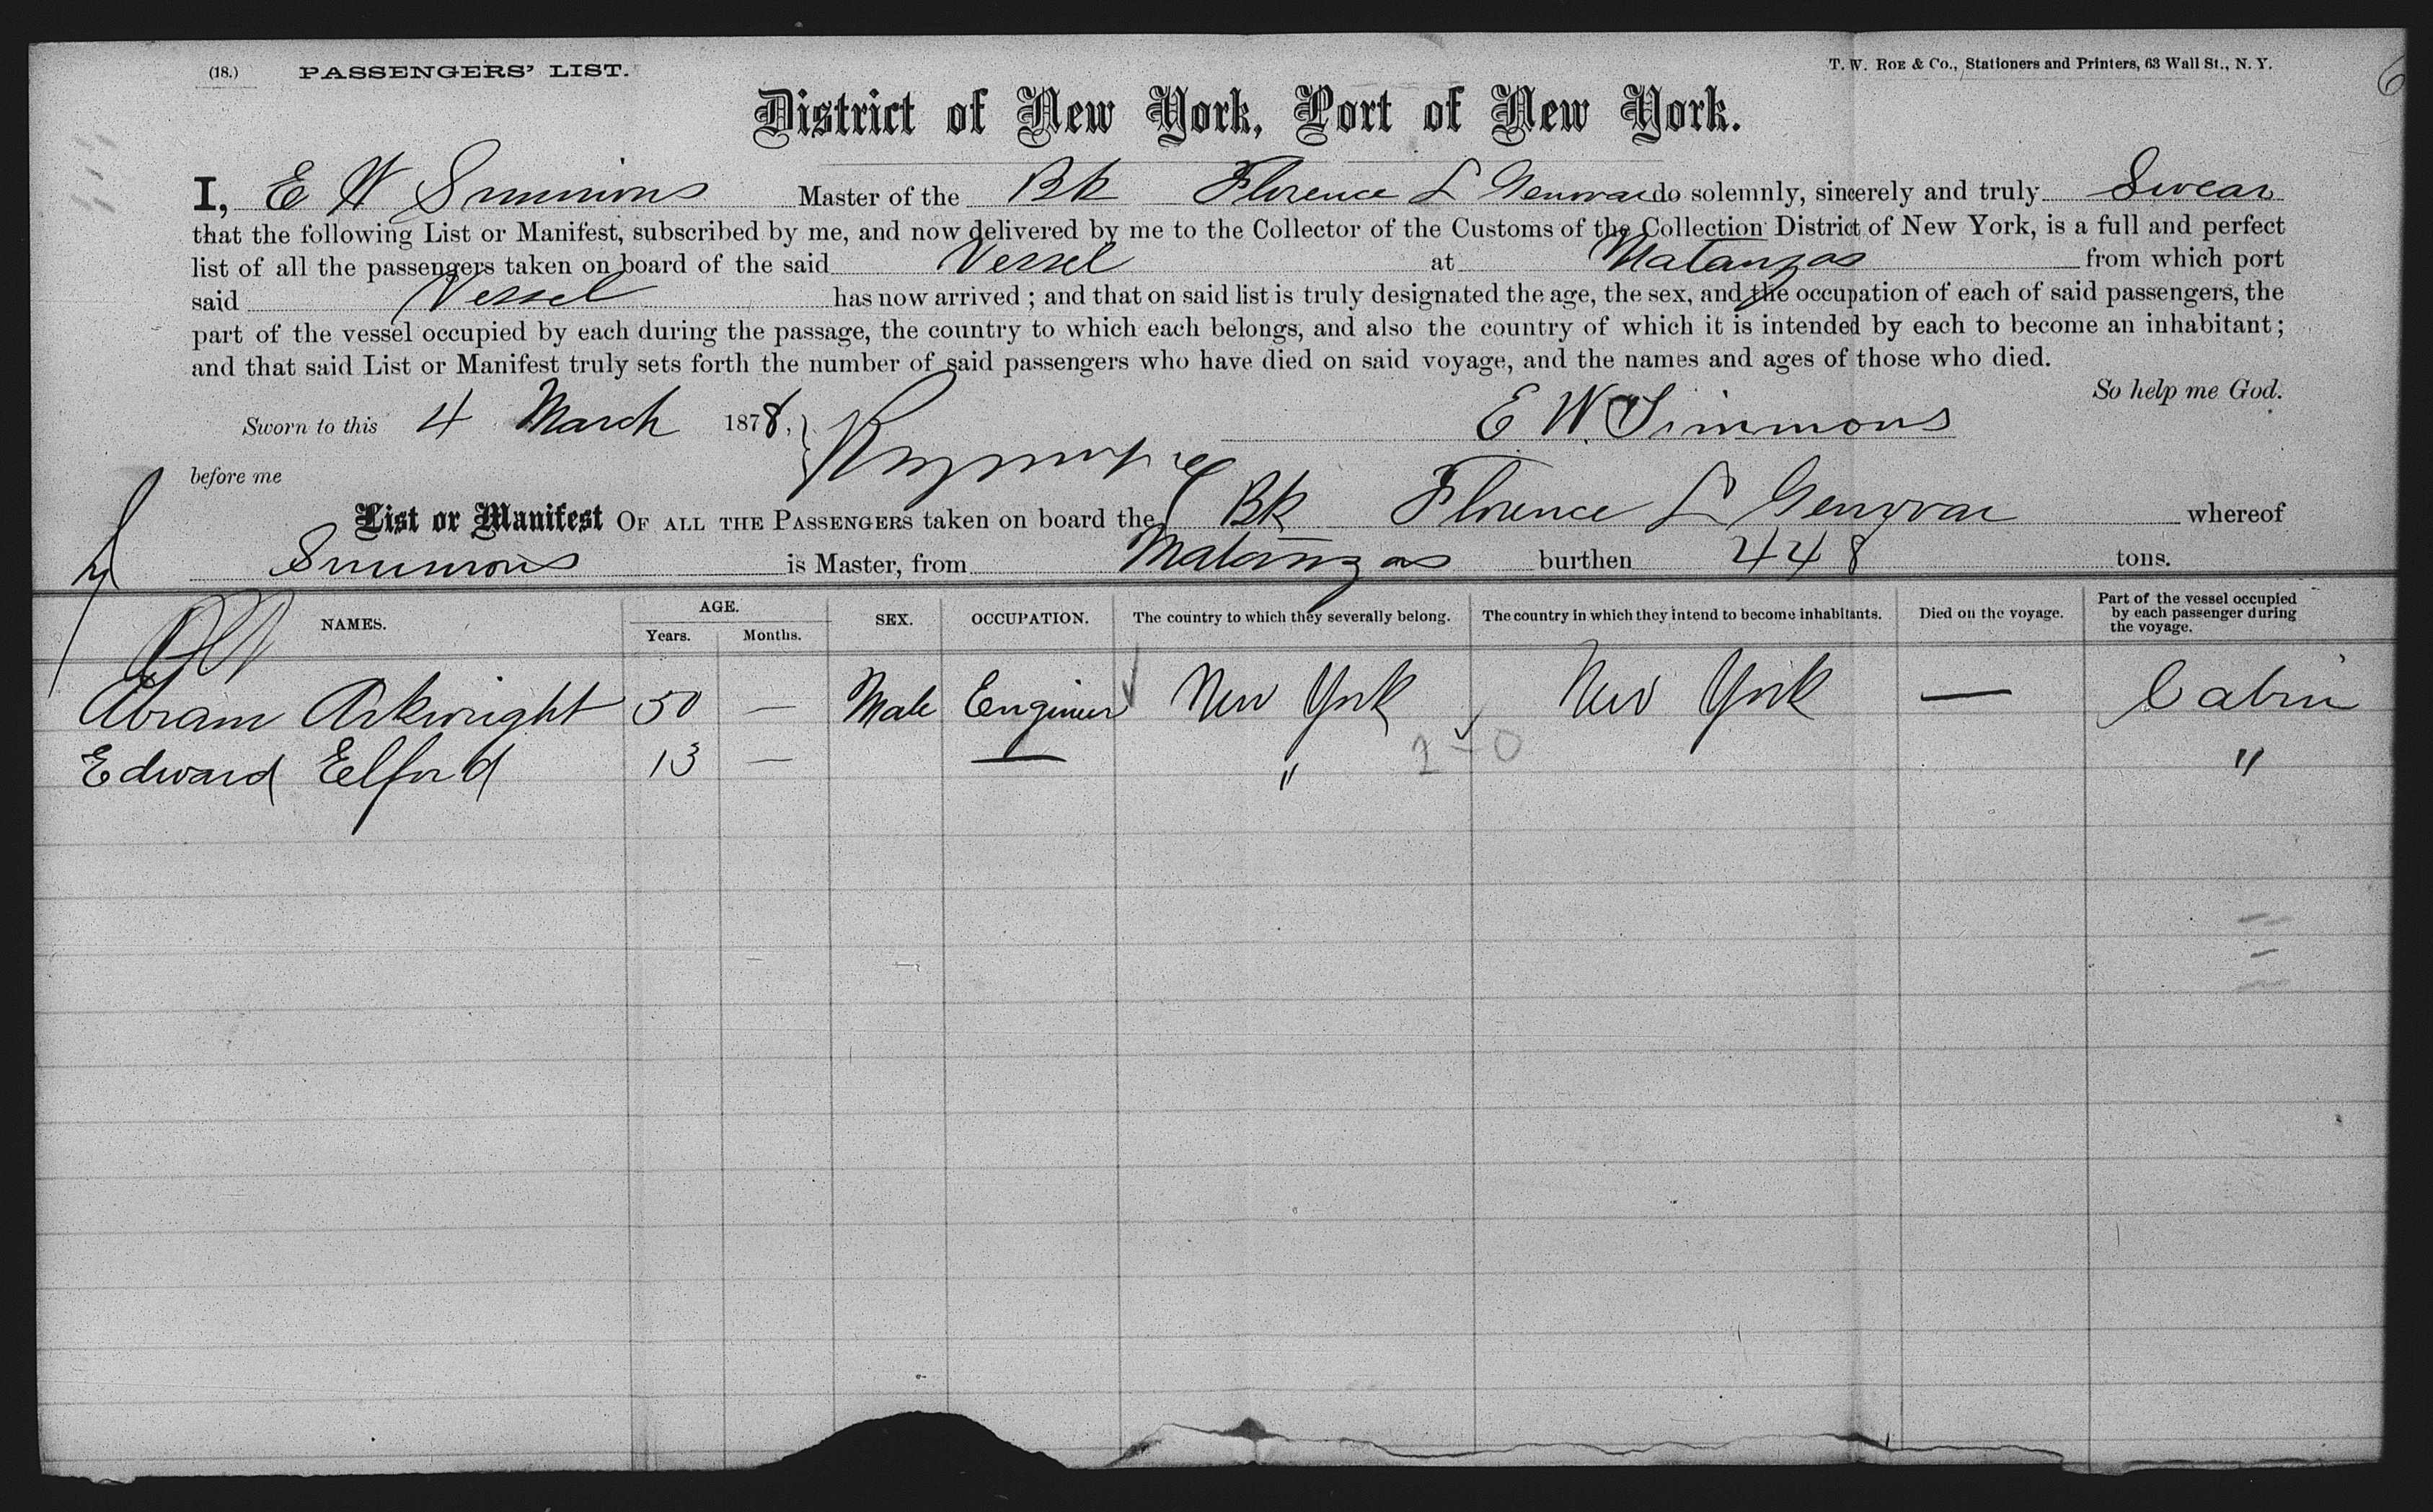 (18.) PASSENGERS' LIST. T. W. ROE & Co., Stationers and Printers, 63 Wall St., N. Y.
6
District of New York, Port of New York.
I, E W Simmons Master of the Bk Florence L Genovar do solemnly, sincerely and truly Swear
that the following List or Manifest, subscribed by me, and now delivered by me to the Collector of the Customs of the Collection District of New York, is a full and perfect
list of all the passengers taken on board of the said Vessel at Matanzas from which port
said Vessel has now arrived ; and that on said list is truly designated the age, the sex, and the occupation of each of said passengers, the
part of the vessel occupied by each during the passage, the country to which each belongs, and also the country of which it is intended by each to become an inhabitant;
and that said List or Manifest truly sets forth the number of said passengers who have died on said voyage, and the names and ages of those who died.
So help me God.
Sworn to this 4 March 1878, E W Simmons
before me
List or Manifest OF ALL THE PASSENGERS taken on board the Bk Florence L Genovar whereof
Simmons is Master, from Matanzas burthen 448 tons.
NAMES. AGE. Years. Months. SEX. OCCUPATION. The country to which they severally belong. The country in which they intend to become inhabitants. Died on the voyage. Part of the vessel occupied by each passenger during the voyage.
Abram Arkwright 50 — Male Engineer New York New York — Cabin
Edward Elford 13 — — " 2-0 "